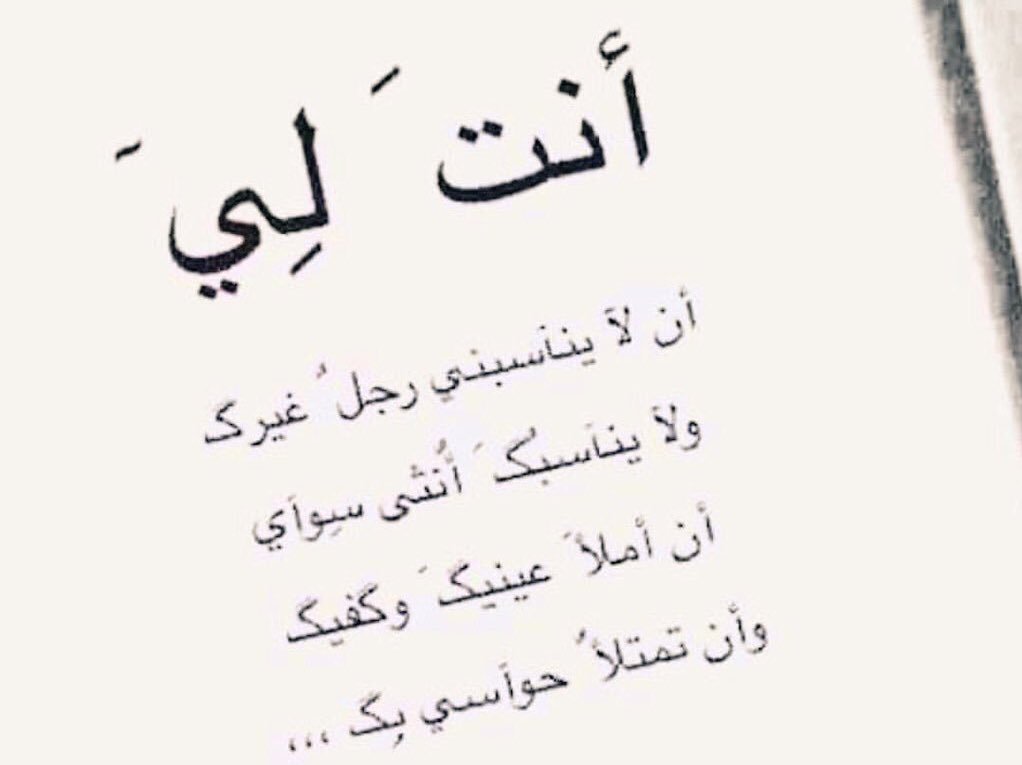 أنت َ لِي َ
أن لآ ينآسبني رجل ُ غيرگ
ولآ ينآسبُگ َ أُنثى سِوآي
أن أملأَ عينيگ َ وگفيگ
وأن تمتلأ ُ حوآسي بِگ ,,,